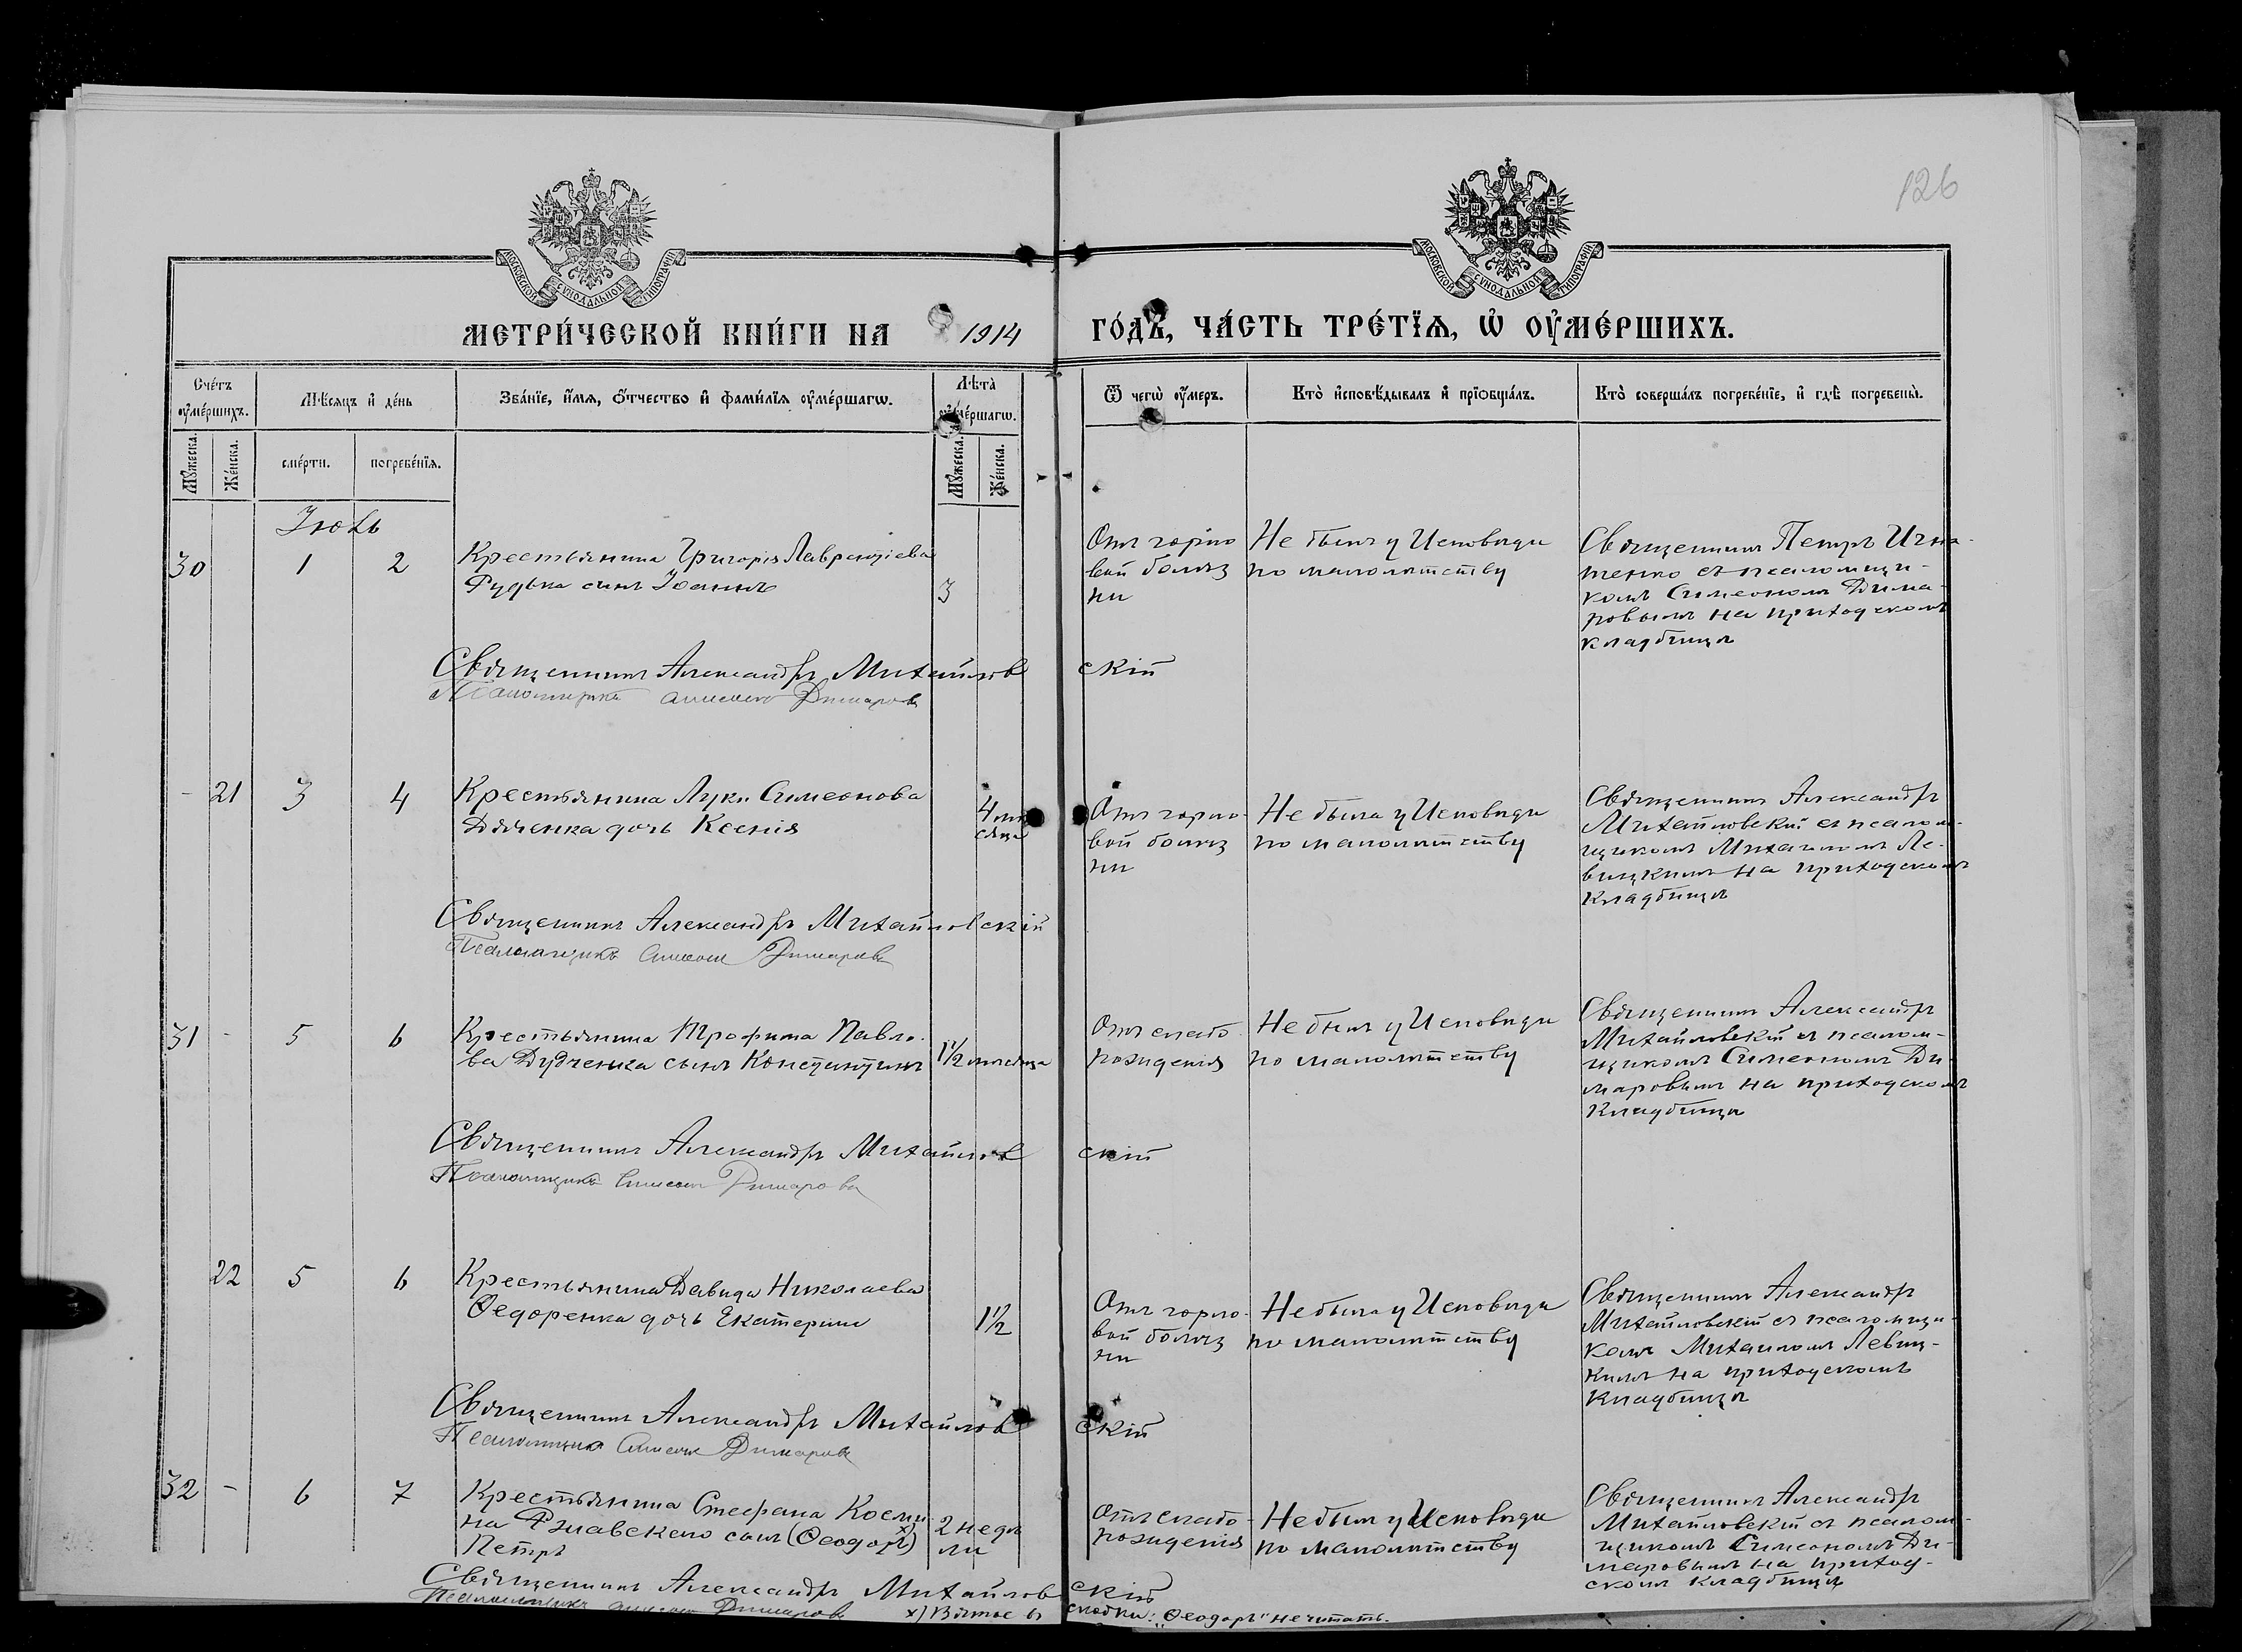 126
МОСКОВСКОЙ СѴНОДАЛЬНОЙ ТИПОГРАФІИ
МОСКОВСКОЙ СѴНОДАЛЬНОЙ ТИПОГРАФІИ
МЕТРИ́ЧЕСКОЙ КНИ́ГИ НА 1914 ГО́ДЪ, ЧА́СТЬ ТРЕ́ТЇѦ, Ѡ҆ ОУ҆МЕ́РШИХЪ.
Сче́тъ оу҆ме́ршихъ.
Мꙋ́жеска.
Же́нска.
Мѣ́сѧцъ и҆ де́нь
сме́рти.
погребе́нїѧ.
Зва́нїе, и҆́мѧ, ѻ҆́тчество и҆ фами́лїѧ оу҆ме́ршагѡ.
Лѣ́та оу҆ме́ршагѡ.
Мꙋ́жеска.
Же́нска.
Ѿ чегѡ̀ оу҆́меръ.
Кто̀ и҆сповѣ́дывалъ и҆ прїѻбща́лъ.
Кто̀ соверша́лъ погребе́нїе, и҆ гдѣ̀ погребены̀.
Іюль
30 1 2
Крестьянина Григорія Лаврентіева
Рудька сынъ Іоаннъ
3
Отъ горло
вой болѣз
ни
Не былъ у Исповѣди
по малолѣтству
Священникъ Петръ Игна-
тенко съ псаломщи-
комъ Симеономъ Дима-
ровымъ на приходскомъ
кладбищѣ
Священникъ Александръ Михайловскій
Псаломщикъ Симеонъ Димаровъ
- 21 3 4
Крестьянина Луки Симеонова
Дяченка дочь Ксенія
4 мѣ
сяца
Отъ горло-
вой болѣз
ни
Не была у Исповѣди
по малолѣтству
Священникъ Александръ
Михайловскій съ псалом-
щикомъ Михаиломъ Ле-
вицкимъ на приходскомъ
кладбищѣ
Священникъ Александръ Михайловскій
Псаломщикъ Симеонъ Димаровъ
31 - 5 6
Крестьянина Трофима Павло-
ва Дудченка сынъ Константинъ
1½ мѣсяца
Отъ слабо
рожденія
Не былъ у Исповѣди
по малолѣтству
Священникъ Александръ
Михайловскій съ псалом-
щикомъ Симеономъ Ди-
маровымъ на приходскомъ
кладбищѣ
Священникъ Александръ Михайловскій
Псаломщикъ Симеонъ Димаровъ
22 5 6
Крестьянина Давида Николаева
Ѳедоренка дочь Екатерина
1½
Отъ горло-
вой болѣз
ни
Не была у Исповѣди
по малолѣтству
Священникъ Александръ
Михайловскій съ псаломщи-
комъ Михаиломъ Левиц-
кимъ на приходскомъ
кладбищѣ
Священникъ Александръ Михайловскій
Псаломщикъ Симеонъ Димаровъ
32 - 6 7
Крестьянина Стефана Косми
на Ржавскаго сынъ (Ѳеодоръ) х)
Петръ
2 недѣ
ли
Отъ слабо-
рожденія
Не былъ у Исповѣди
по малолѣтству
Священникъ Александръ
Михайловскій съ псалом-
щикомъ Симеономъ Ди-
маровымъ на приход-
скомъ кладбищѣ
Священникъ Александръ Михайловскій
Псаломщикъ Симеонъ Димаровъ
х) Взятое въ скобки: „Ѳеодоръ" не читать.